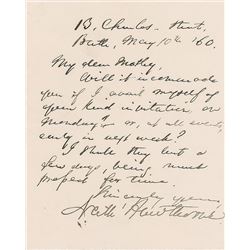 13, Charles Street,
Bath, May 10th '60.
My dear Mothy,
Will it incommode
you if I avail myself of
your kind invitation, on
Monday? or, at all events,
early in next week?
I shall stay but a
few days, being much
pressed for time.
Sincerely yours,
Nath' Hawthorne